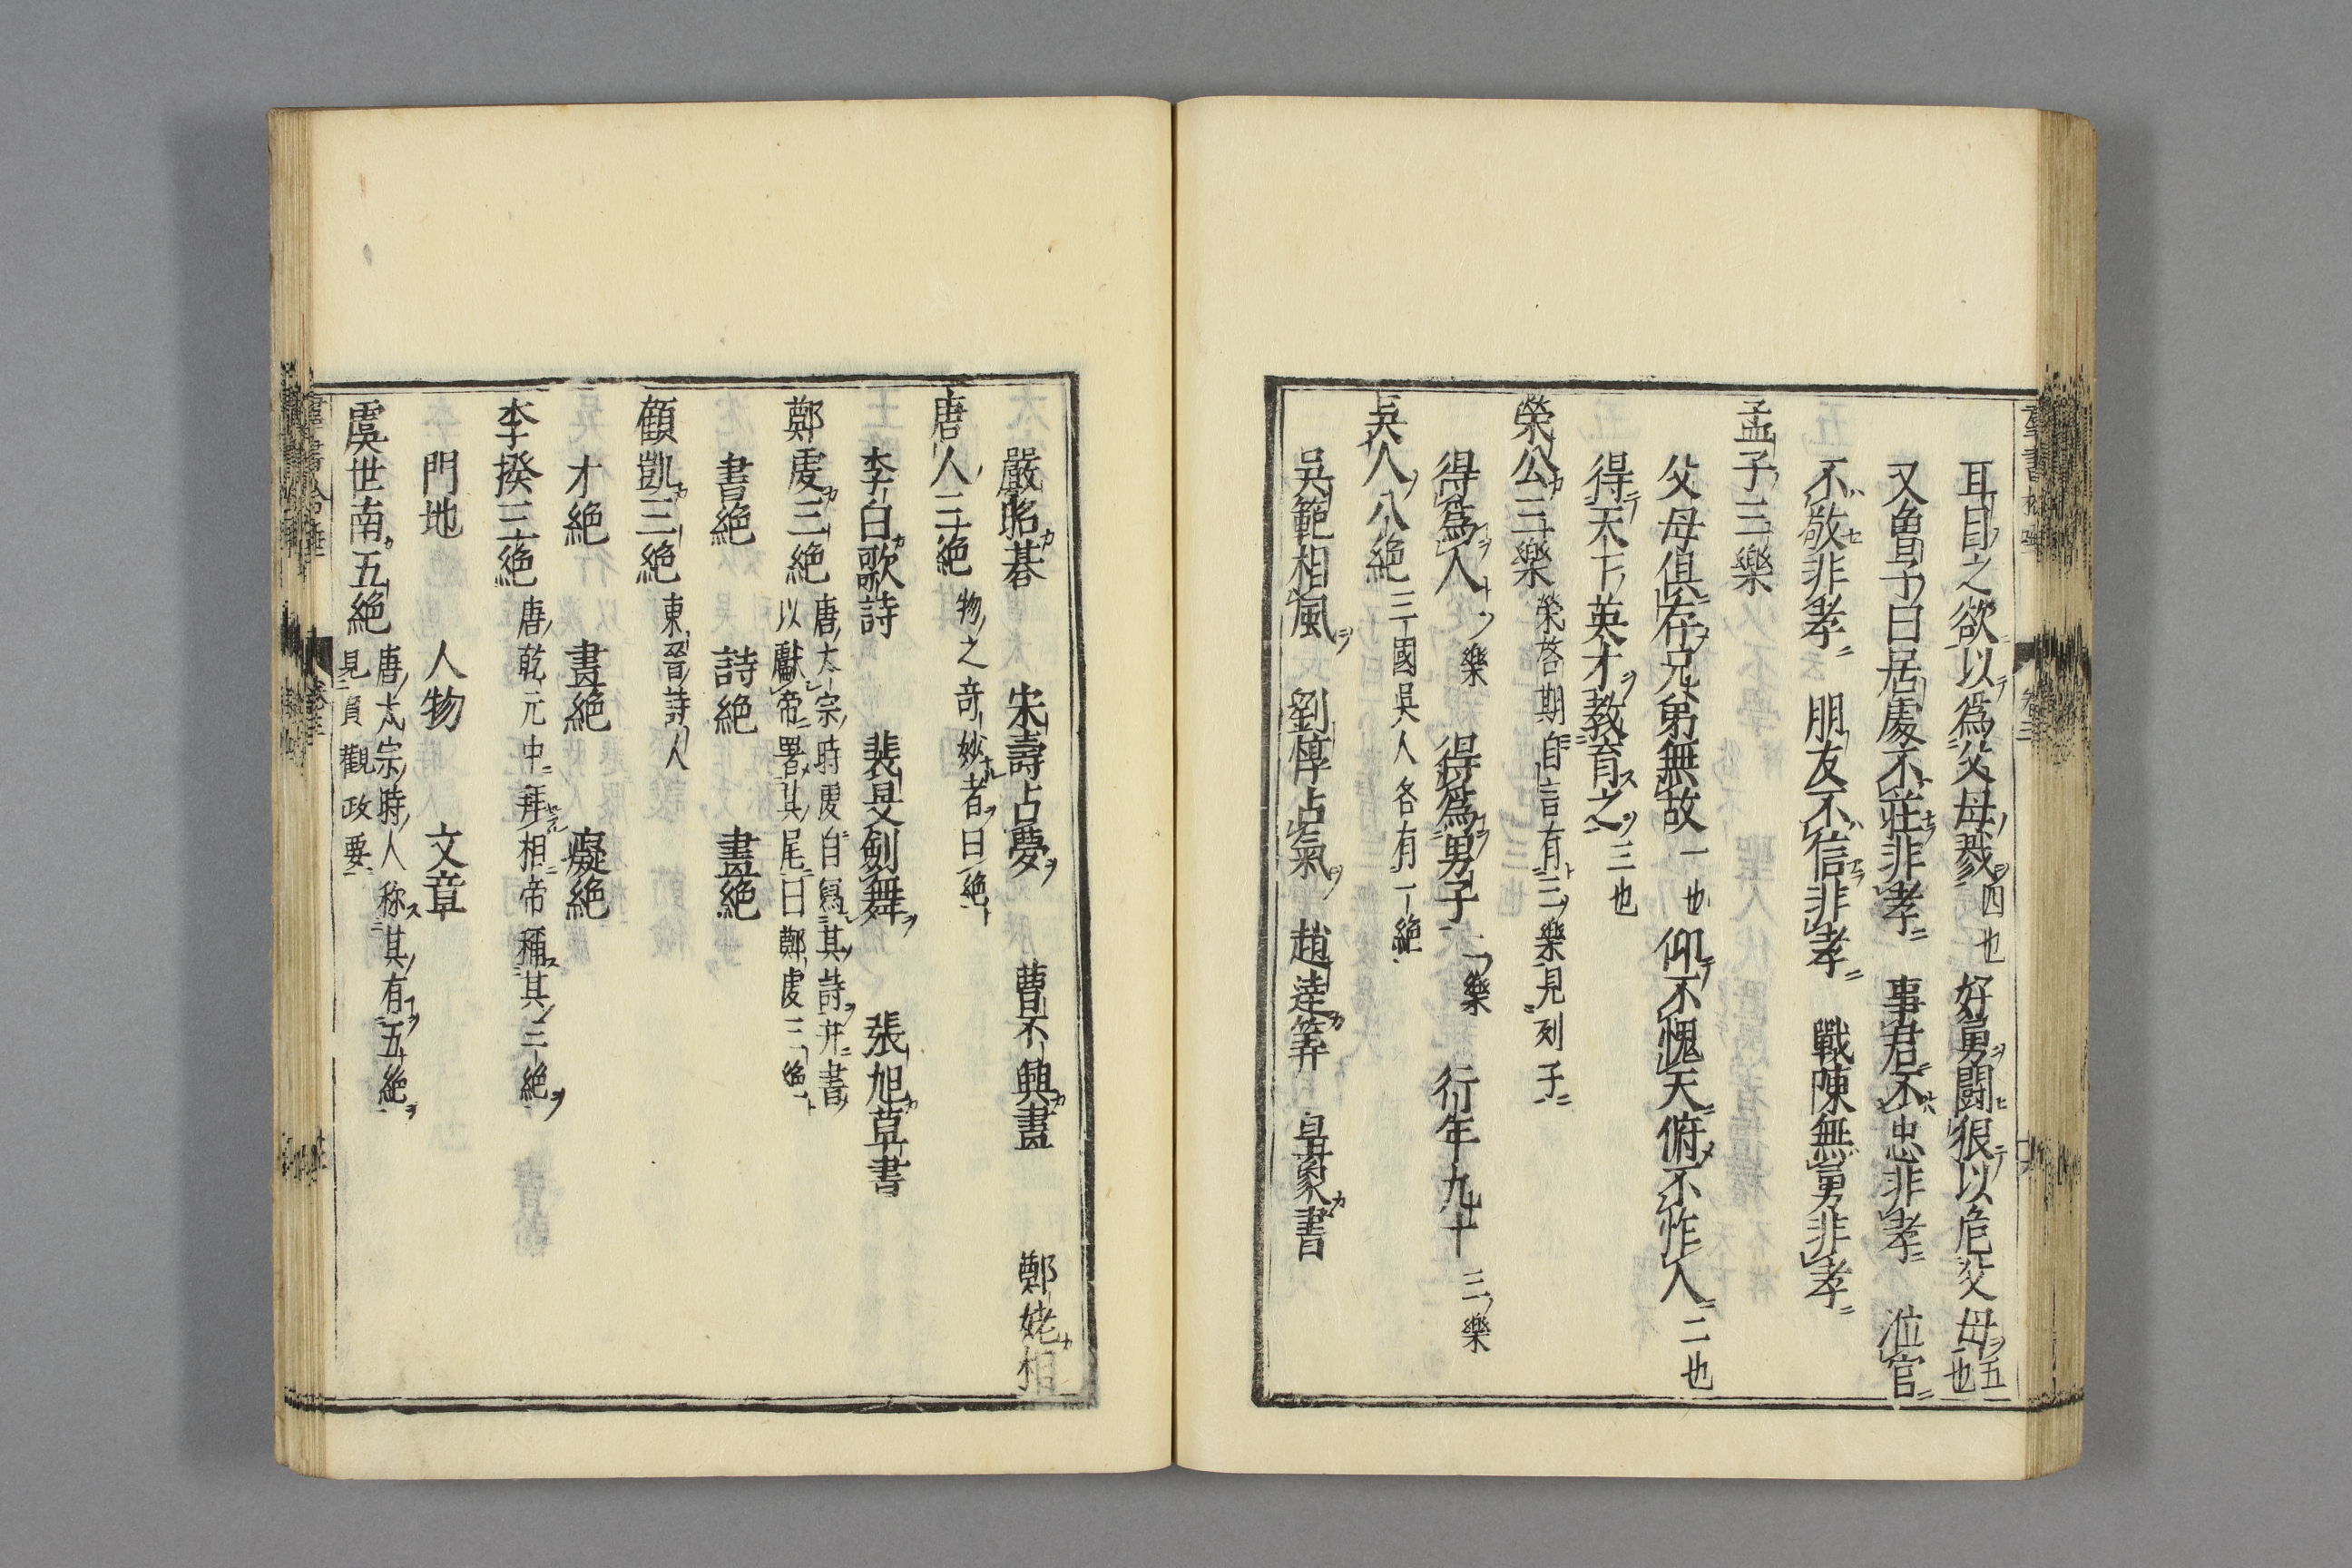 耳目之欲以爲父母戮四也 好勇鬪狠以危父母五也
又曽子曰居處不莊非孝 事君不忠非孝 涖官
不敬非孝 朋友不信非孝 戰陳無勇非孝
孟子三樂
父母俱存兄弟無故一也 仰不愧天俯不怍人二也
得天下英才教育之三也
榮公三樂 榮啓期自言有三樂見列子
得爲人一樂 得爲男子二樂 行年九十三樂
吳人八絶 三國吳人各有一絶
吳範相風 劉惇占氣 趙達筭 皇象書
嚴昭碁 宋壽占夢 曹不興畫 鄭姥相
唐人三絶 物之奇妙者曰絶
李白歌詩 裴旻劍舞 張旭草書
鄭虔三絶 唐太宗時虔自寫其詩并書
以獻帝署其尾曰鄭虔三絶
書絶 詩絶 畫絶
顧凱三絶 東晉詩人
才絶 畫絶 癡絶
李揆三絶 唐乾元中拜相帝稱其三絶
門地 人物 文章
虞世南五絶 唐太宗時人称其有五絶
見貞觀政要